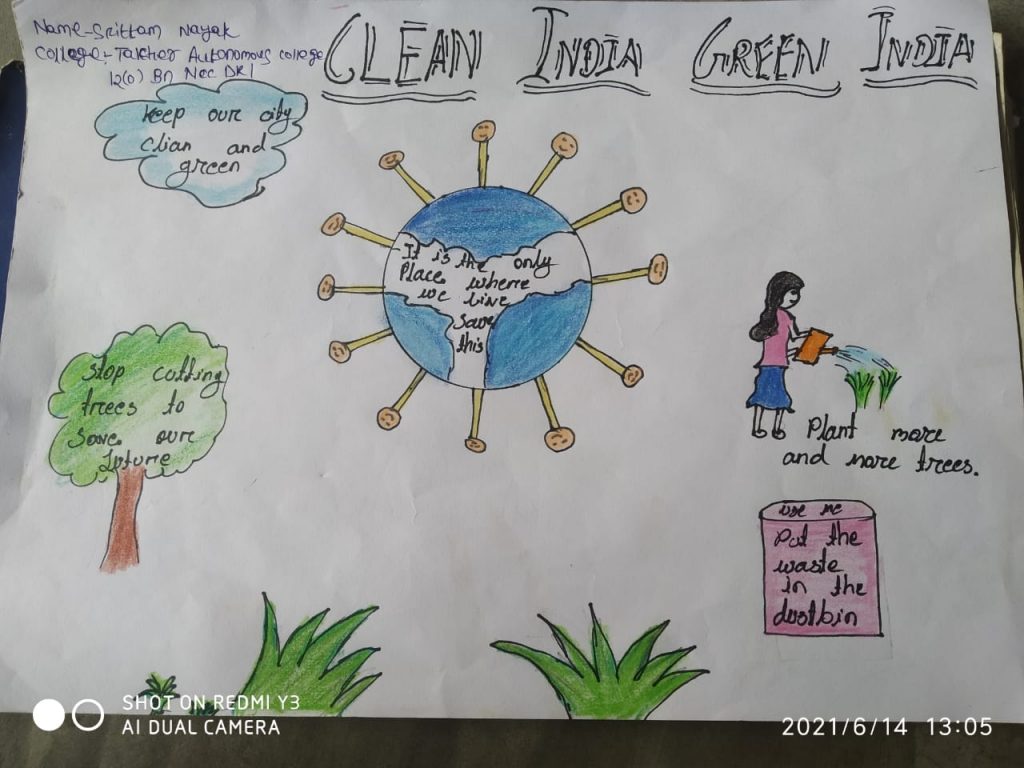 Name-Srittam Nayak
College:- Talcher Autonomous college
12(o) Bn Ncc DKl
CLEAN INDIA GREEN INDIA
keep our city
clian and
green
It is the only
Place where
we live
Save
this
Stop cutting
trees to
Save our
future
Plant more
and more trees.
use me
Put the
waste
in the
dustbin
SHOT ON REDMI Y3
AI DUAL CAMERA
2021/6/14 13:05